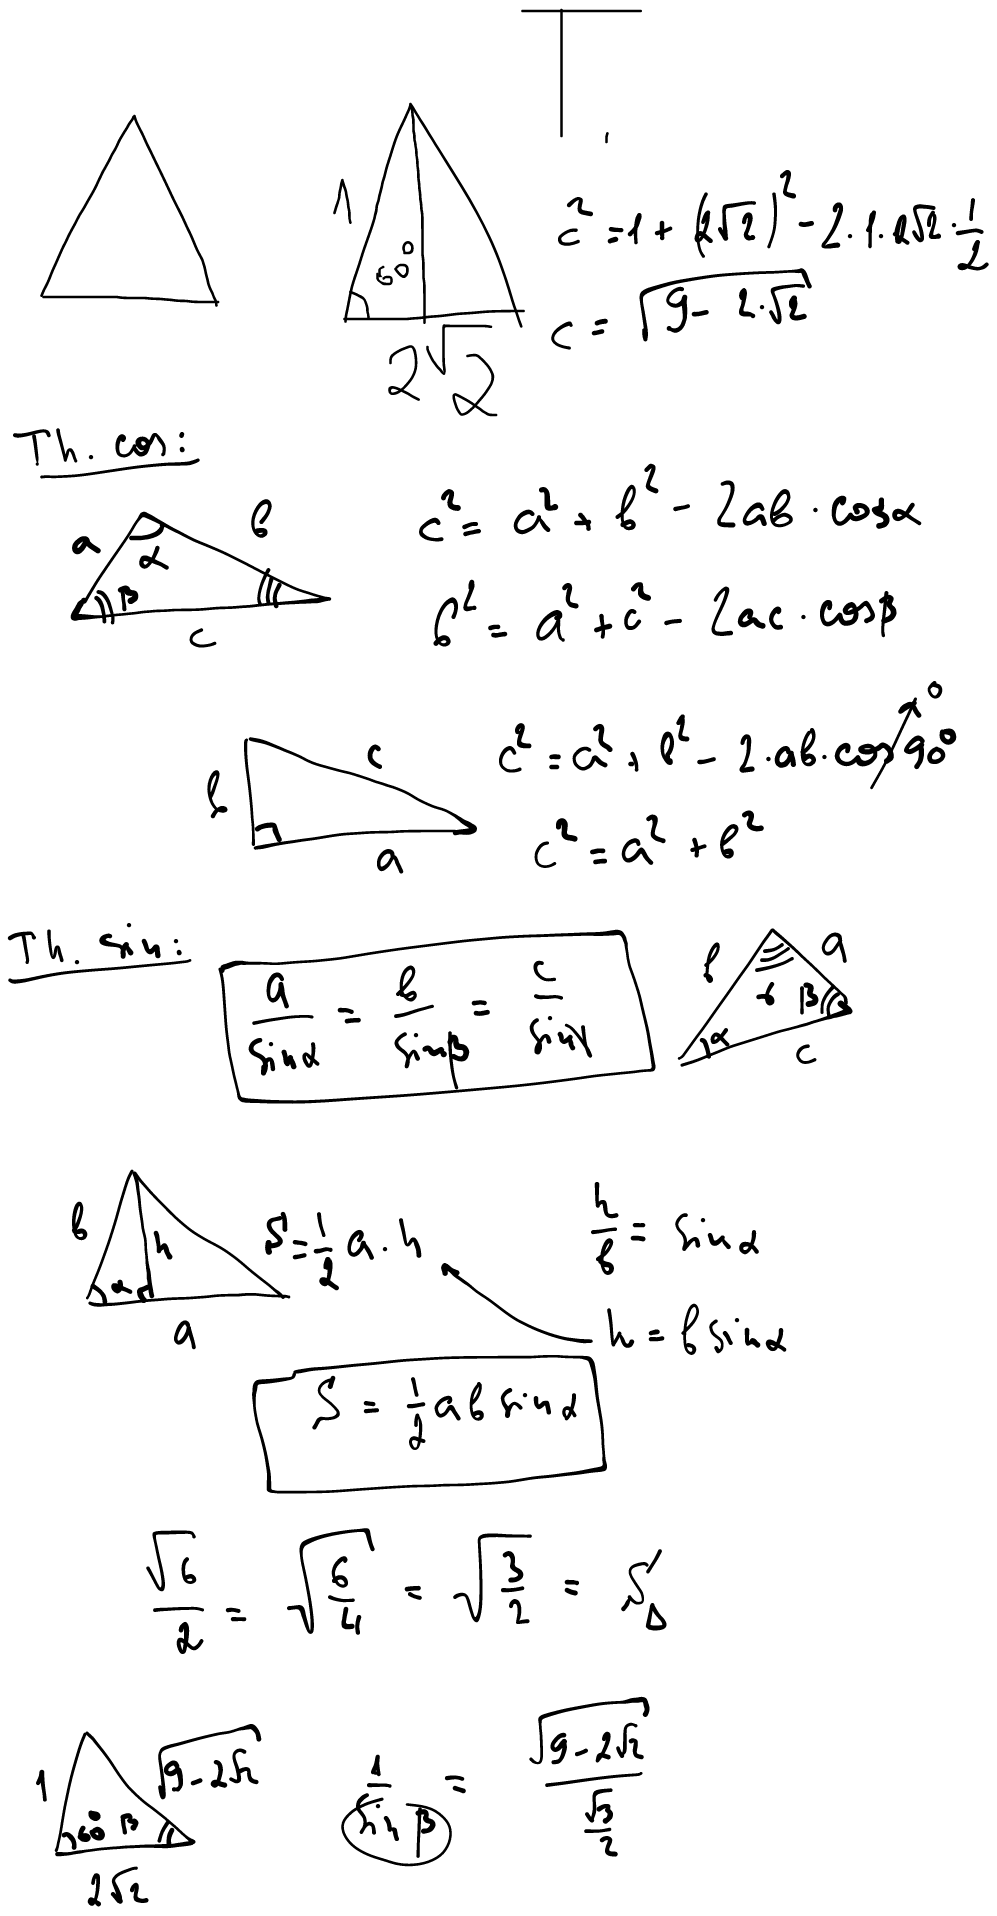 1
60°
2√2
c² = 1 + (2√2)² - 2·1·2√2·1/2
c = √(9 - 2·√2)
Th. cos:
a α b β c
c² = a² + b² - 2ab · cosα
b² = a² + c² - 2ac · cosβ
b c a
c² = a² + b² - 2·ab·cos90° 0
c² = a² + b²
Th. sin:
a/sinα = b/sinβ = c/sinγ
b a γ β α c
b h α a
S = 1/2 a · h
h/b = sinα
h = b sinα
S = 1/2 ab sinα
√6/2 = √(6/4) = √(3/2) = S△
1 √(9-2√2) 60° β 2√2
1/sinβ = √(9-2√2)/(√3/2)